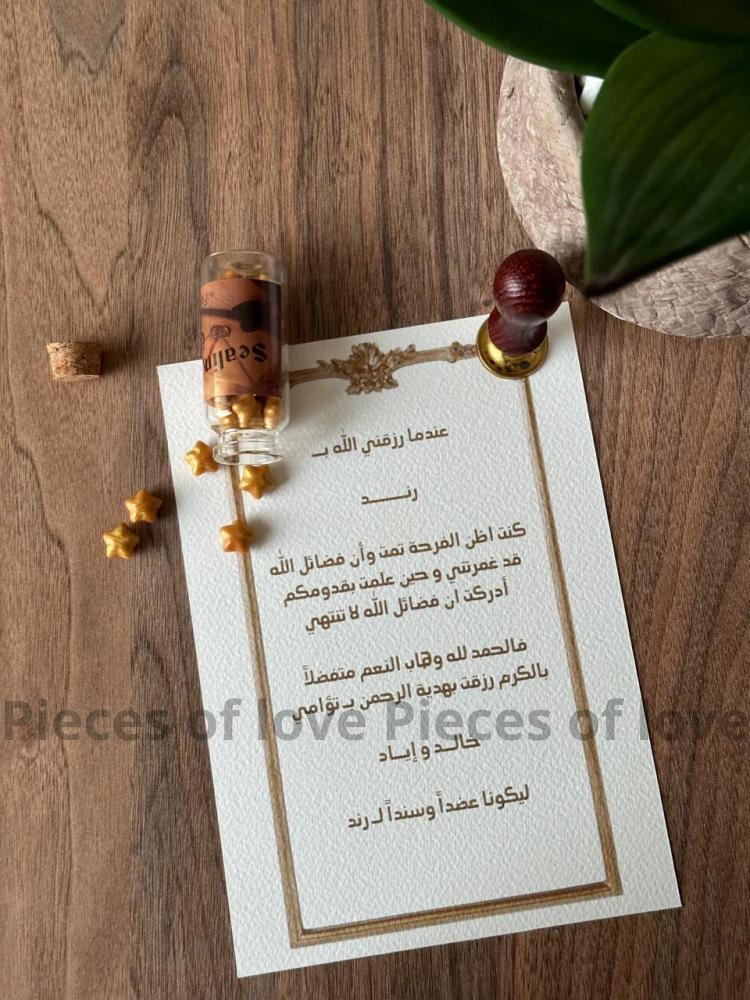 Sealin
عندما رزقني الله بـ
رنــــد
كنت أظن الفرحة تمت وأن فضائل الله
قد غمرتني و حين علمت بقدومكم
أدركت ان فضائل الله لا تنتهي
فالحمد لله وهاب النعم متفضلاً
بالكرم رزقت بهدية الرحمن بـ تؤامي
Pieces of love Pieces of love
خالـد و إيــاد
ليكونا عضداً وسنداً لـ رند